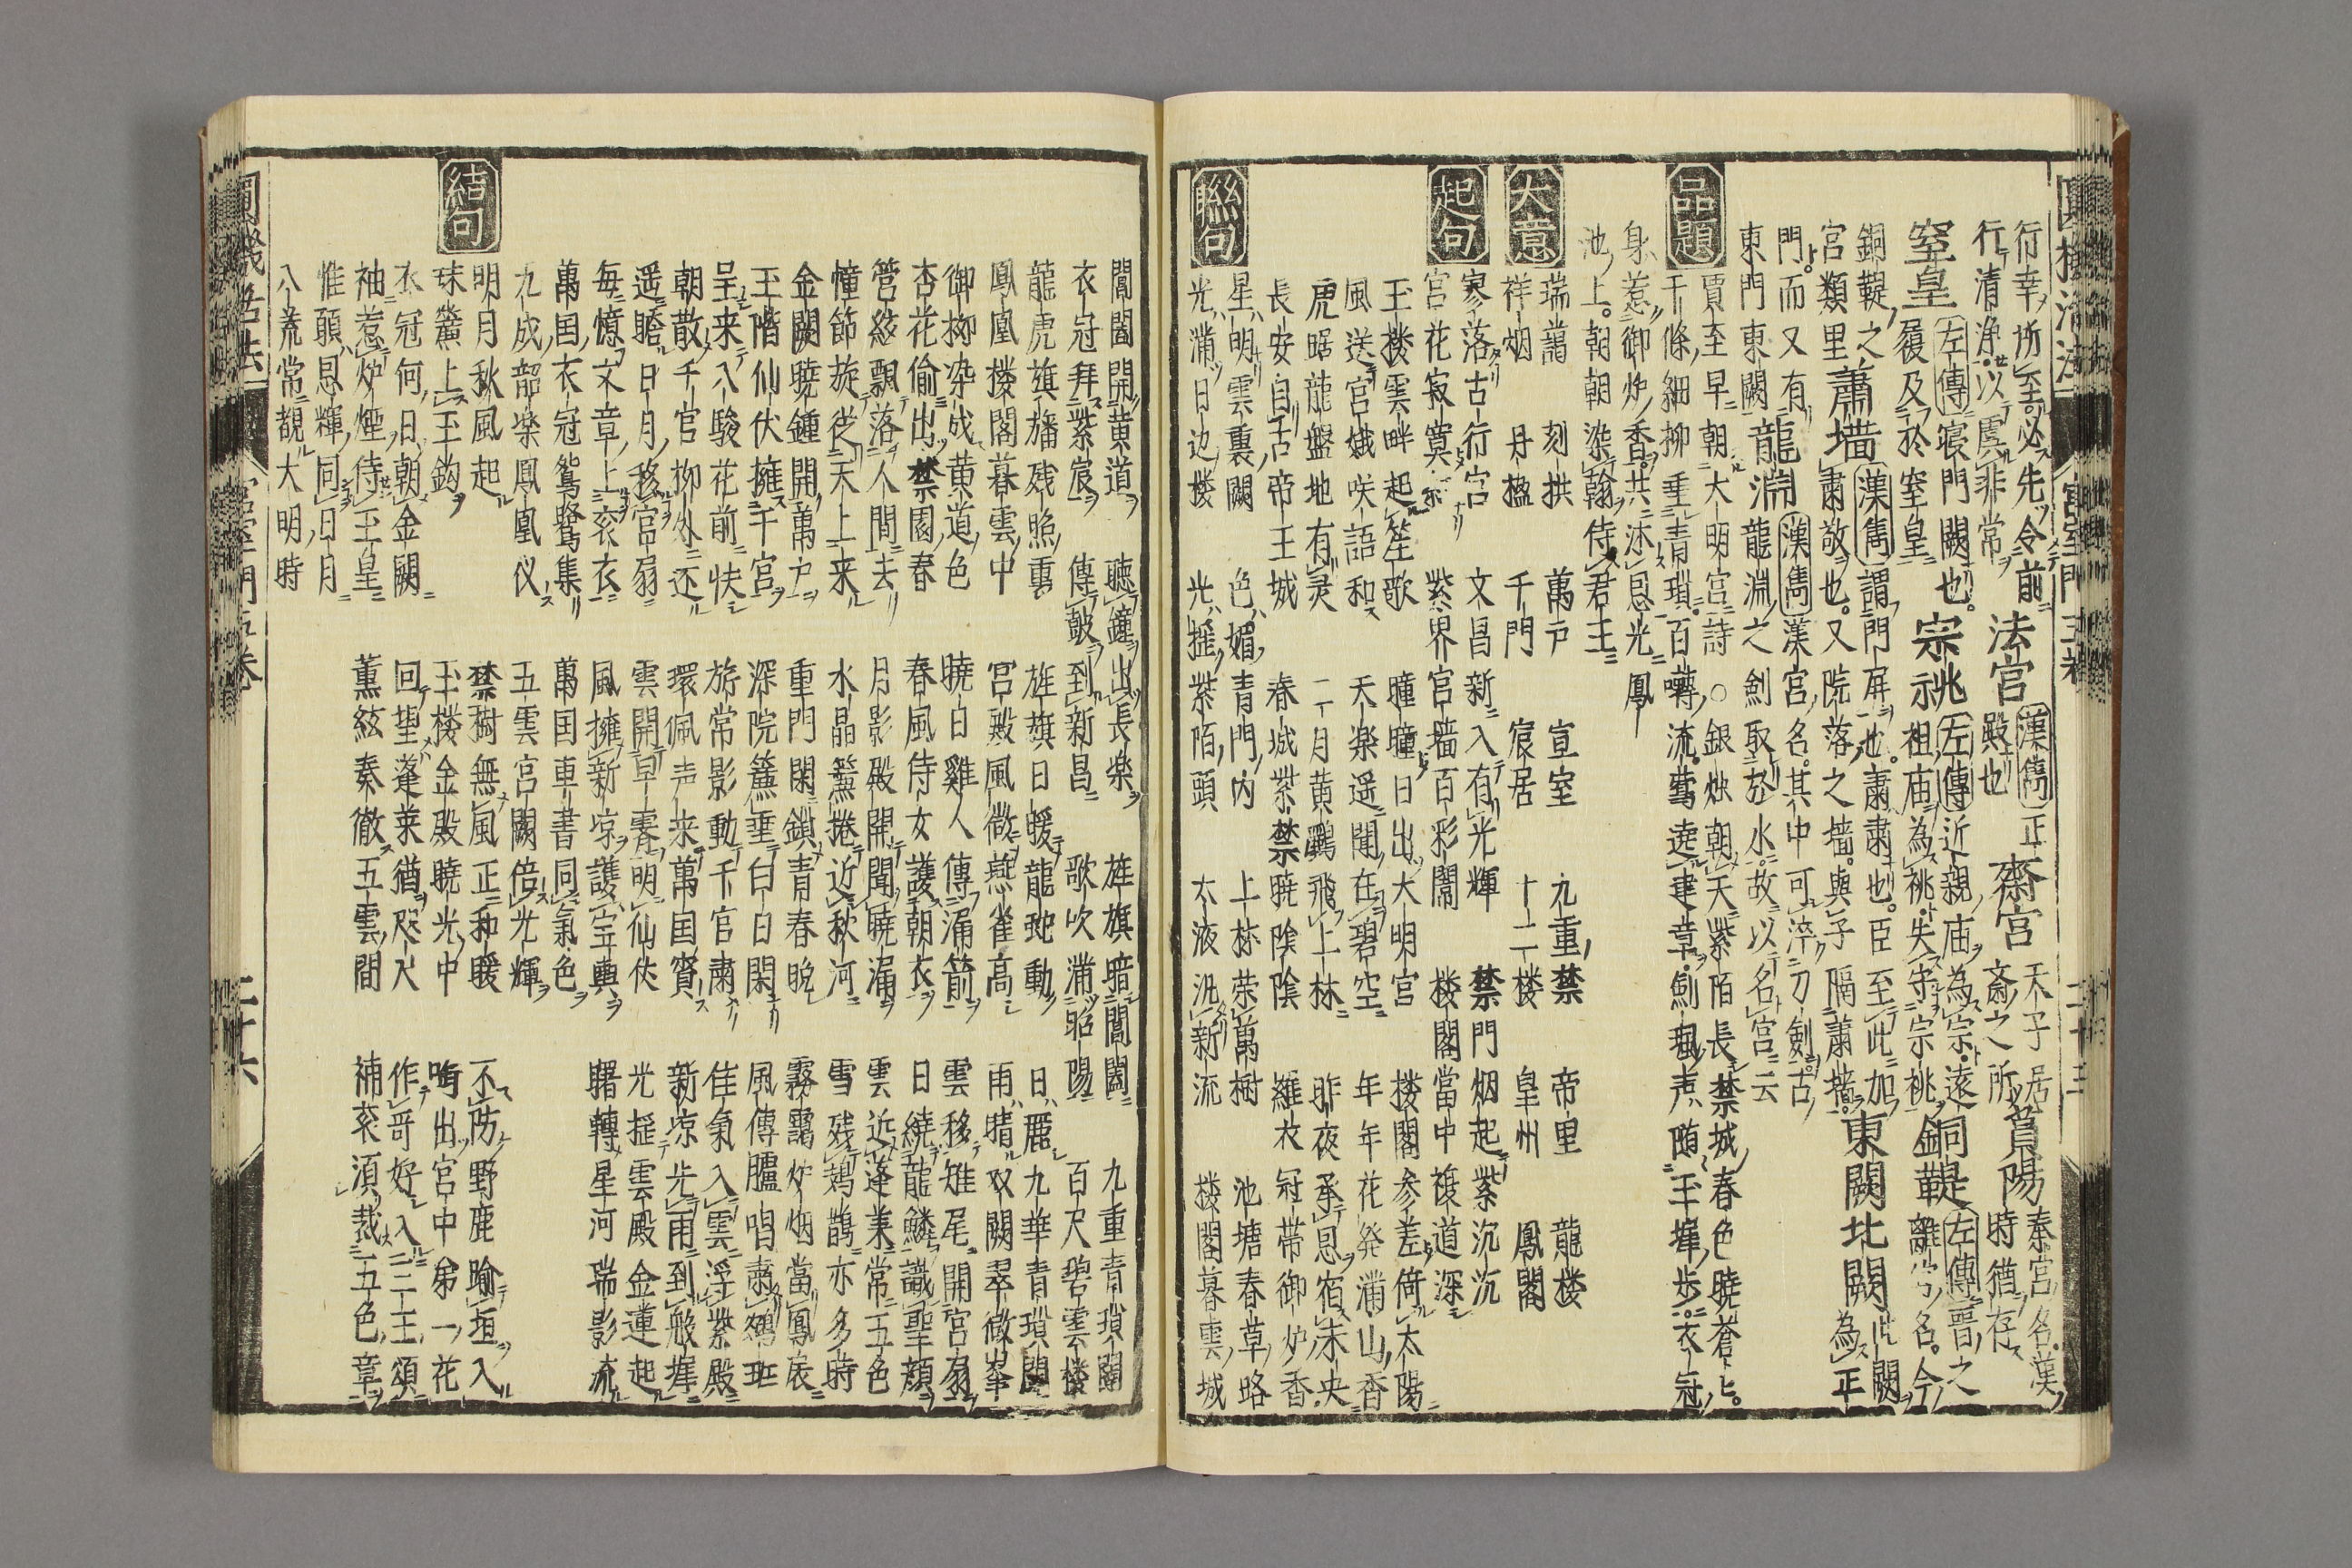 行幸所至必先令前
行清浄以虞非常
法宮
漢雋正
殿也
齋宮
天子居
斎之所
萯陽
秦宮名漢
時猶存
窒皇
左傳寝門闕也
屨及於窒皇
宗祧
左傳近親庙為宗遠
祖庙為祧失守宗祧
銅鞮
左傳晋之
離宮名今
銅鞮之
宮類里
蕭墻
漢雋謂門屏也肅肅也臣至此加
肅敬也又院落之墻與子隔蕭墻
東闕北闕
北闕
為正
門而又有
東門東闕
龍淵
漢雋漢宮名其中可淬刀劍古
龍淵之劍取於水故以名宮云
品題
賈至早朝大明宮詩○銀燭朝天紫陌長禁城春色暁蒼ヒ
千條細柳垂青瑣百囀流鴬遶建章劍珮声随玉墀歩衣冠
身惹御炉香共沐恩光鳳
池上朝朝染翰侍君王
大意
瑞藹 刻拱 萬戸 宣室 九重禁 帝里 龍楼
祥烟 丹楹 千門 宸居 十二楼 皇州 鳳閣
起句
寥落古行宮 文昌新入有光輝 禁門烟起紫沉沉
宮花寂寞 紫界宮墻百彩閙 楼閣當中複道深
玉楼雲畔起笙歌 曈曈日出大明宮 楼閣参差倚太陽
風送宮娥咲語和 天楽遥聞在碧空 年年花発満山香
虎踞龍盤地有灵 二月黄鸝飛上林 昨夜承恩宿未央
長安自古帝王城 春城紫禁暁陰陰 羅衣冠帯御炉香
聯句
星明雲裏闕 色媚青門内 上林荣萬樹 池塘春草略
光満日边楼 光揺紫陌頭 太液汎新流 楼閣暮雲城
閶闔開黄道 聴鐘出長楽 旌旗暗閶闔 九重青瑣闥
衣冠拜紫宸 傳皷到新昌 歌吹満昭陽 百尺碧雲楼
龍虎旗旛残照裏 旌旗日暖龍蛇動 日麗九華青瑣闥
鳳凰楼閣暮雲中 宮殿風微燕雀高 雨晴双闕翠微峯
御柳染成黄道色 暁日雞人傳漏箭 雲移雉尾開宮扇
杏花偷出禁園春 春風侍女護朝衣 日繞龍鱗識聖顔
管絃飄落人間去 月影殿開聞暁漏 雲近蓬莱常五色
幢節旋従天上来 水晶簾捲近秋河 雪残鳷鵲亦多時
金闕暁鍾開萬户 重門閑鎖青春晩 霧靄炉烟當鳳扆
玉階仙仗擁千宮 深院簾垂白日閑 風傳臚唱肅鵷班
呈来八駿花前快 旂常影動千官肅 佳氣入雲浮紫殿
朝散千官柳外还 環佩声来萬国賓 新凉先雨到彤墀
遥瞻日月移宮扇 雲開早霽明仙仗 光揺雲殿金蓮起
每憶文章上衮衣 風擁新凉護宝輿 曙轉星河瑞影流
萬国衣冠鴛鷺集 萬国車書同氣色
九成韶楽鳳凰仪 五雲宮闕倍光輝
結句
明月秋風起 禁樹無風正和暖 不防野鹿踰垣入
珠簾上玉鈎 玉楼金殿暁光中 啣出宮中第一花
衣冠何日朝金闕 回望蓬莱猶咫尺 作哥好入二王頌
袖惹炉煙侍玉皇 薫絃奏徹五雲間 補衮湏裁五色章
惟願恩輝同日月
八荒常覩大明時
二十六